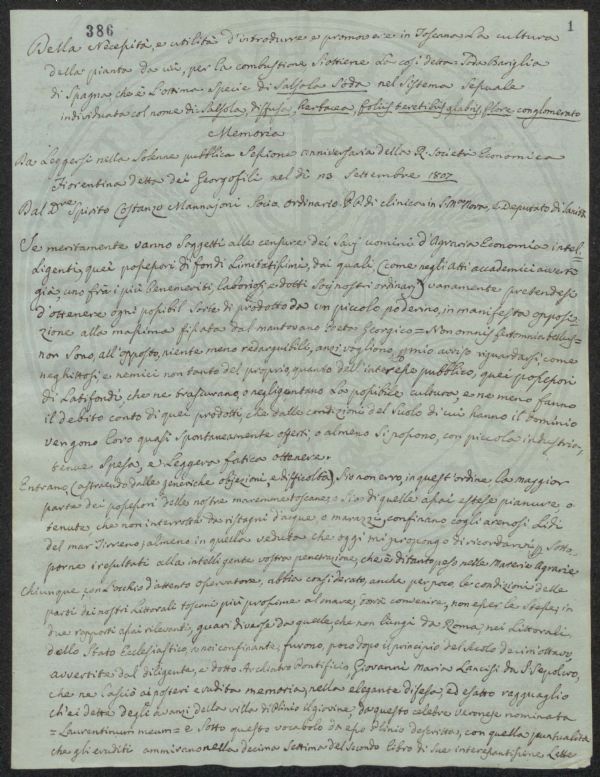 386
1
Della Necessità, e utilità d'introdurre e promovere in Toscana La cultura
della pianta da cui, per la combustione Si ottiene La così detta Soda Bariglia
di Spagna, che è L'ottima Specie di Salsola Soda nel Sistema Sessuale
individuata col nome di Salsola, diffusa, herbacea, foliis teretibus glabris, flore conglomerato
Memoria
Da Leggersi nella Solenne pubblica Sessione anniversaria della R. Società Economica
Fiorentina detta dei Georgofili nel dì 23 Settembre 1807
Dal Dre Spirito Costanzo Mannajoni Socio ordinario P.P. di clinica in S. Ma Nova, e Deputato di Sanità
Se meritamente vanno Soggetti alle censure dei Savj uomini d'Agraria Economia intel=
Ligenti, quei possessori di fondi Limitatissimi, dai quali (come negli atti accademici avvertì
già, uno frà i più benemeriti, laboriosi e dotti Socj nostri ordinarj) vanamente pretendesi
d'ottenere ogni possibil Sorte di prodotto da un piccolo podere, in manifesta opposi=
zione alla massima fissata dal mantovano Poeta Georgico = Non omnis fert omnia tellus =
non Sono, all'opposto, niente meno redarguibili, anzi vogliono, p mio avviso riguardarsi come
neghittosi e nemici non tanto del proprio, quanto dell'interesse pubblico, quei possessori
di Latifondi, che ne trascurano, o negligentano La possibile cultura, e ne meno fanno
il debito conto di quei prodotti, che dalle condizioni del Suolo di cui hanno il dominio
vengono Loro quasi Spontaneamente offerti, o almeno Si possono, con piccola industria,
tenue Spesa, e Leggera fatica ottenere.
Entrano, (astraendo dalle generiche obiezioni, e difficoltà) S'io non erro, in quest'ordine La maggior
parte dei possessori delle nostre maremme toscane, o Sia di quelle assai estese pianure, o
tenute che non interrotte da ristagni d'acque, o marazzi, confinano cogli arenosi Lidi
del mar Tirreno, almeno in quella veduta che oggi mi propongo di ricordarvi, p Sotto=
porne i resultati alla intelligente vostra penetrazione, che è di tanto peso nelle Materie Agrarie
Chiunque, con L'occhio d'attento osservatore, abbia considerato, anche per poco, le condizioni delle
parti dei nostri Littorali toscani più prossime al mare, dovrà convenire, non esser le Stesse, in
due rapporti assai rilevanti, guari diverse da quelle, che non Lungi da Roma, nei Littorali
dello Stato Ecclesiastico, a noi confinante, furono, poco dopo il principio del Secolo decimo ottavo,
avvertite dal diligente, e dotto Archiatro Pontificio, Giovanni Maria Lancisi da S. Sepolcro,
che ne Lasciò ai posteri erudita memoria, nella elegante difesa, ed esatto ragguaglio
ch'ei dette degli avanzi della villa di Plinio il giovine, da questo celebre veronese nominata
= Laurentinum meum = e Sotto questo vocabolo da esso Plinio descritta, con quella puntualità
che gli eruditi ammirano nella decima Settima del Secondo libro di Sue interessantissime Lette